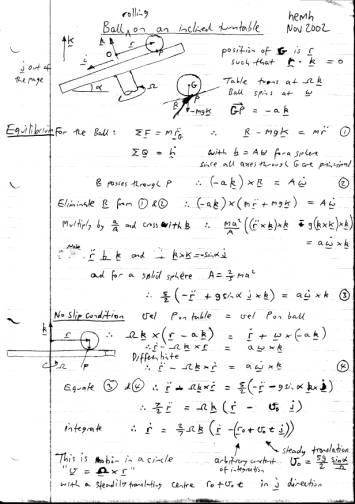 rolling
Ball ∧ on an inclined turntable
hemh
Nov 2002
j out of
the page
position of G is r
such that r · k = 0
Table turns at Ω k
Ball spins at ω
GP = -a k
Equilibrium For the Ball: ΣF = m r̈G ∴ R - mg K = m r̈ ①
ΣQ = ḣ with h = Aω for a sphere
since all axes through G are principal
R passes through P ∴ (-a k) × R = A ω̇ ②
Eliminate R from ① & ② ∴ (-a k) × (m r̈ + mg K) = A ω̇
Multiply by a/A and cross with k ∴ ma²/A ((r̈ × k) × k + g (k × K) × k)
= a ω̇ × k
Note r̈ ⊥ k and k × K = -sinα j
and for a solid sphere A = 2/5 ma²
∴ 5/2 (-r̈ + g sinα j × k) = a ω̇ × k ③
No slip condition vel P on table = vel P on ball
∴ Ω k × (r - a k) = ṙ + ω × (-a k)
∴ ṙ - Ω k × r = a ω × k
Differentiate
∴ r̈ - Ω k × ṙ = a ω̇ × k ④
Equate ③ & ④ ∴ r̈ - Ω k × ṙ = 5/2 (-r̈ - g sinα k × j)
∴ 7/2 r̈ = Ω k × (ṙ - v₀ j)
integrate ∴ ṙ = 2/7 Ω k × (r - (r₀ + v₀ t j))
This is motion in a circle
"v = Ω × r"
with a steadily translating centre r₀ + v₀ t in j direction
arbitrary constant
of integration
steady translation
v₀ = 5g/2 sinα/Ω